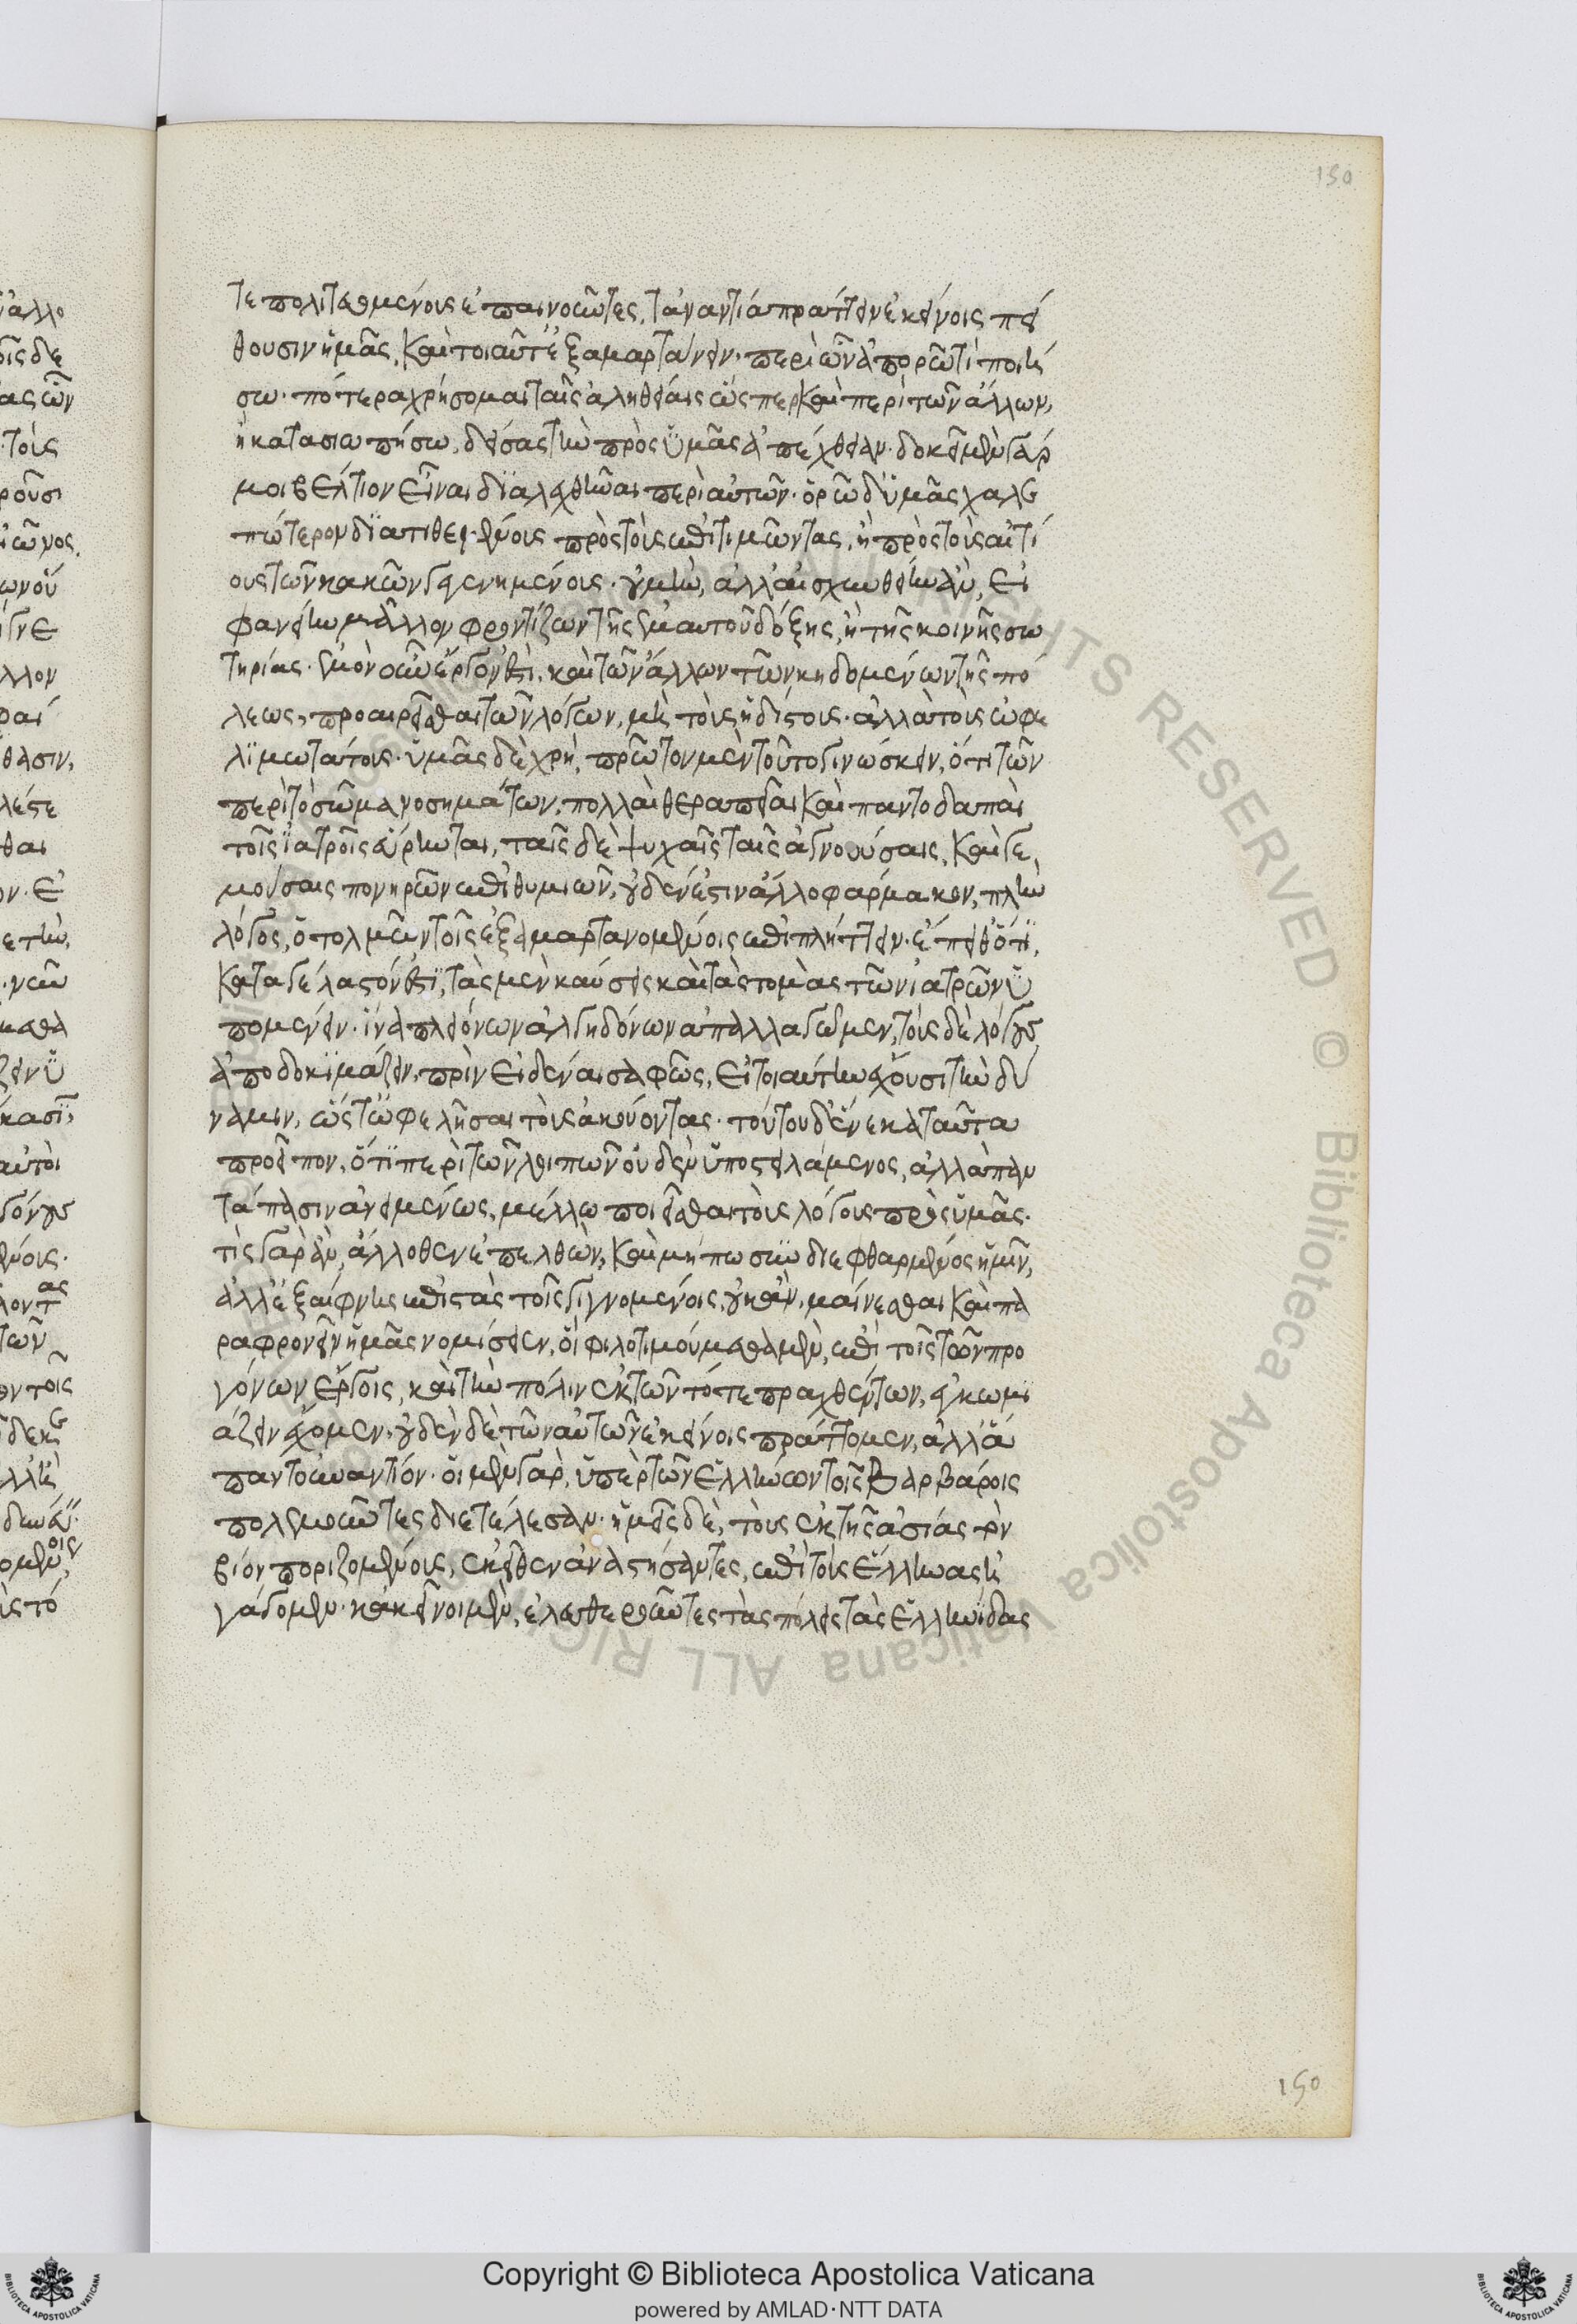 150
τε πολιτευομένους ἐπαινοῦντες, τἀναντία πράττειν ἐκείνοις πεί
θουσιν ἡμᾶς, καὶ τοιαῦτ' ἐξαμαρτάνειν. περὶ ὧν ἀπορῶ τί ποιή
σω. πότερα χρήσομαι ταῖς ἀληθείαις ὥσπερ καὶ περὶ τῶν ἄλλων,
ἢ κατασιωπήσω, δείσας τὴν πρὸς ὑμᾶς ἀπέχθειαν. δοκεῖ μὲν γάρ
μοι βέλτιον εἶναι διαλεχθῆναι περὶ αὐτῶν. ὁρῶ δ' ὑμᾶς χαλε
πώτερον διατιθεμένους πρὸς τοὺς ἐπιτιμῶντας, ἢ πρὸς τοὺς αἰτί
ους τῶν κακῶν γεγενημένους. οὐ μὴν ἀλλ' αἰσχυνθείην ἂν, εἰ
φανείην μᾶλλον φροντίζων τῆς ἐμαυτοῦ δόξης, ἢ τῆς κοινῆς σω
τηρίας. ἐμὸν οὖν ἔργον ἐστὶ, καὶ τῶν ἄλλων τῶν κηδομένων τῆς πό
λεως, προαιρεῖσθαι τῶν λόγων, μὴ τοὺς ἡδίστους. ἀλλὰ τοὺς ὠφε
λιμωτάτους. ὑμᾶς δὲ χρὴ, πρῶτον μὲν τοῦτο γινώσκειν, ὅτι τῶν
περὶ τὸ σῶμα νοσημάτων, πολλαὶ θεραπεῖαι καὶ παντοδαπαὶ
τοῖς ἰατροῖς εὕρηνται, ταῖς δὲ ψυχαῖς ταῖς ἀγνοούσαις, καὶ γε
μούσαις πονηρῶν ἐπιθυμιῶν, οὐδέν ἐστιν ἄλλο φάρμακον, πλὴν
λόγος, ὁ τολμῶν τοῖς ἐξαμαρτανομένοις ἐπιπλήττειν. ἔπειθ' ὅτι,
καταγέλαστόν ἐστι, τὰς μὲν καύσεις καὶ τὰς τομὰς τῶν ἰατρῶν ὑ
πομένειν. ἵνα πλειόνων ἀλγηδόνων ἀπαλλαγῶμεν, τοὺς δὲ λόγους
ἀποδοκιμάζειν, πρὶν εἰδέναι σαφῶς, εἰ τοιαύτην ἔχουσι τὴν δύ
ναμιν, ὥστ' ὠφελῆσαι τοὺς ἀκούοντας. τούτου δ' ἕνεκα ταῦτα
προεῖπον, ὅτι περὶ τῶν λοιπῶν οὐδὲν ὑποστειλάμενος, ἀλλὰ παν
τάπασιν ἀνειμένως, μέλλω ποιεῖσθαι τοὺς λόγους πρὸς ὑμᾶς.
τίς γὰρ ἂν, ἄλλοθεν ἐπελθὼν, καὶ μήπω συνδιεφθαρμένος ἡμῖν,
ἀλλ' ἐξαίφνης ἐπιστὰς τοῖς γιγνομένοις, οὐκ ἂν, μαίνεσθαι καὶ πα
ραφρονεῖν ἡμᾶς νομίσειεν, οἳ φιλοτιμούμεθα μὲν, ἐπὶ τοῖς τῶν προ
γόνων ἔργοις, καὶ τὴν πόλιν ἐκ τῶν τότε πραχθέντων, ἐγκωμι
άζειν ἔχομεν, οὐδὲν δὲ τῶν αὐτῶν ἐκείνοις πράττομεν, ἀλλὰ
πᾶν τοὐναντίον. οἱ μὲν γὰρ, ὑπὲρ τῶν Ἑλλήνων τοῖς βαρβάροις
πολεμοῦντες διετέλεσαν. ἡμεῖς δὲ, τοὺς ἐκ τῆς ἀσίας τὸν
βίον ποριζομένους, ἐκεῖθεν ἀναστήσαντες, ἐπὶ τοὺς Ἕλληνας ἠ
γάγομεν. κἀκεῖνοι μὲν, ἐλευθεροῦντες τὰς πόλεις τὰς Ἑλληνίδας
150
Copyright © Biblioteca Apostolica Vaticana
powered by AMLAD·NTT DATA